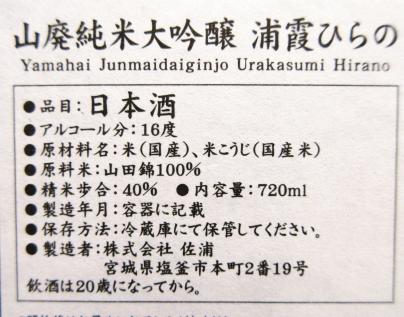 山廃純米大吟醸 浦霞ひらの
Yamahai Junmaidaiginjo Urakasumi Hirano
●品目：日本酒
●アルコール分：16度
●原材料名：米（国産）、米こうじ（国産米）
●原料米：山田錦100%
●精米歩合：40% ●内容量：720ml
●製造年月：容器に記載
●保存方法：冷蔵庫にて保管してください。
●製造者：株式会社 佐浦
宮城県塩釜市本町2番19号
飲酒は20歳になってから。